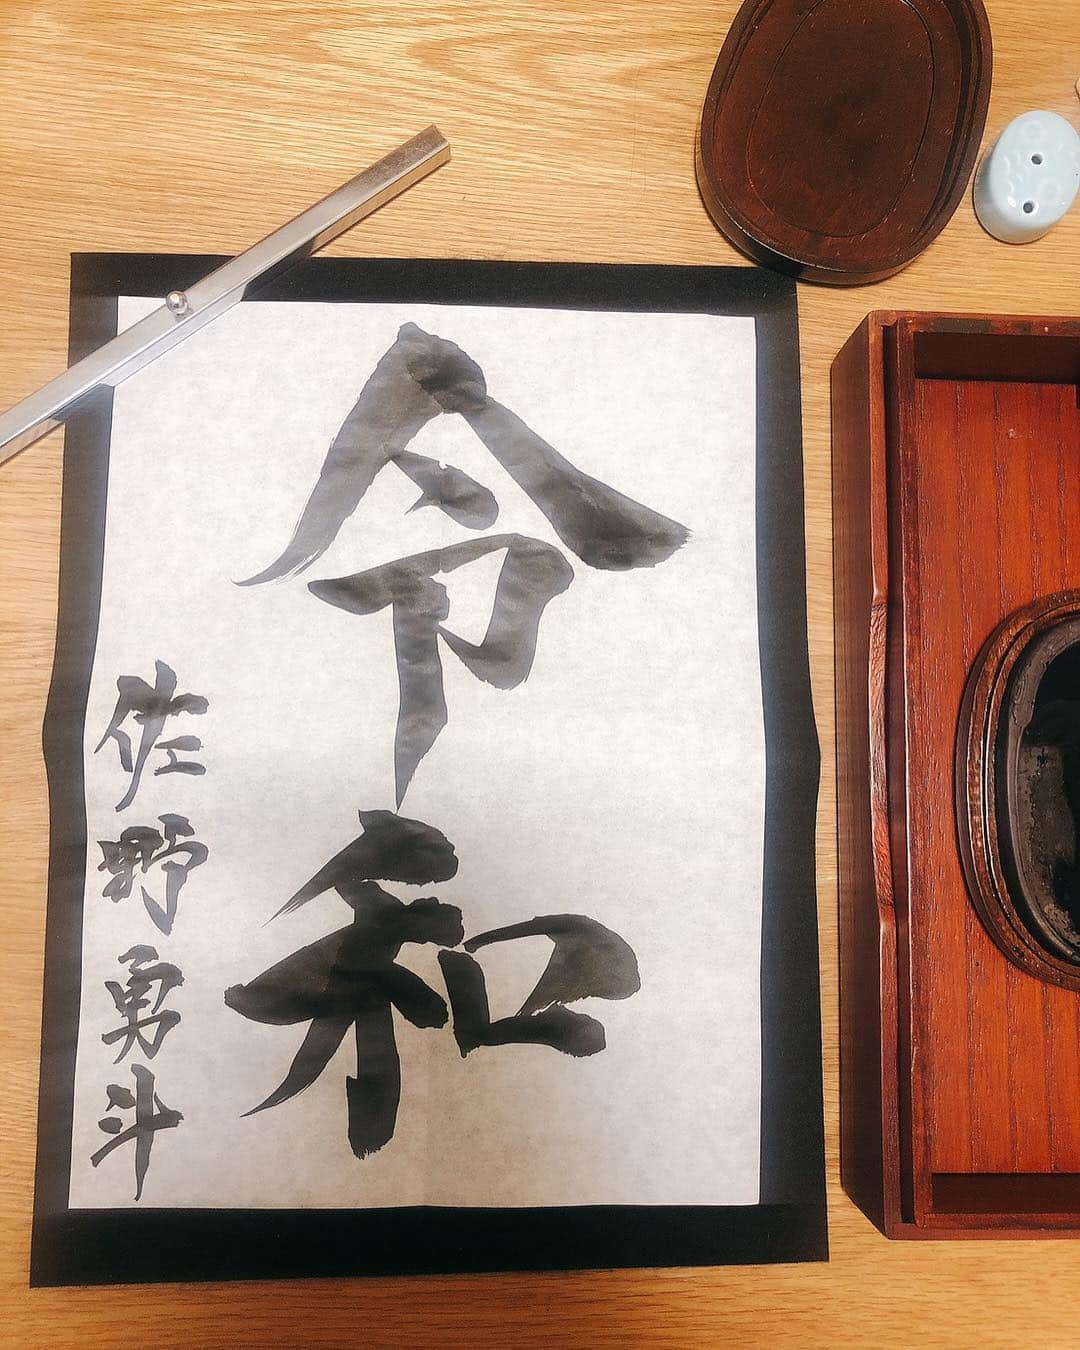 令和
佐野勇斗